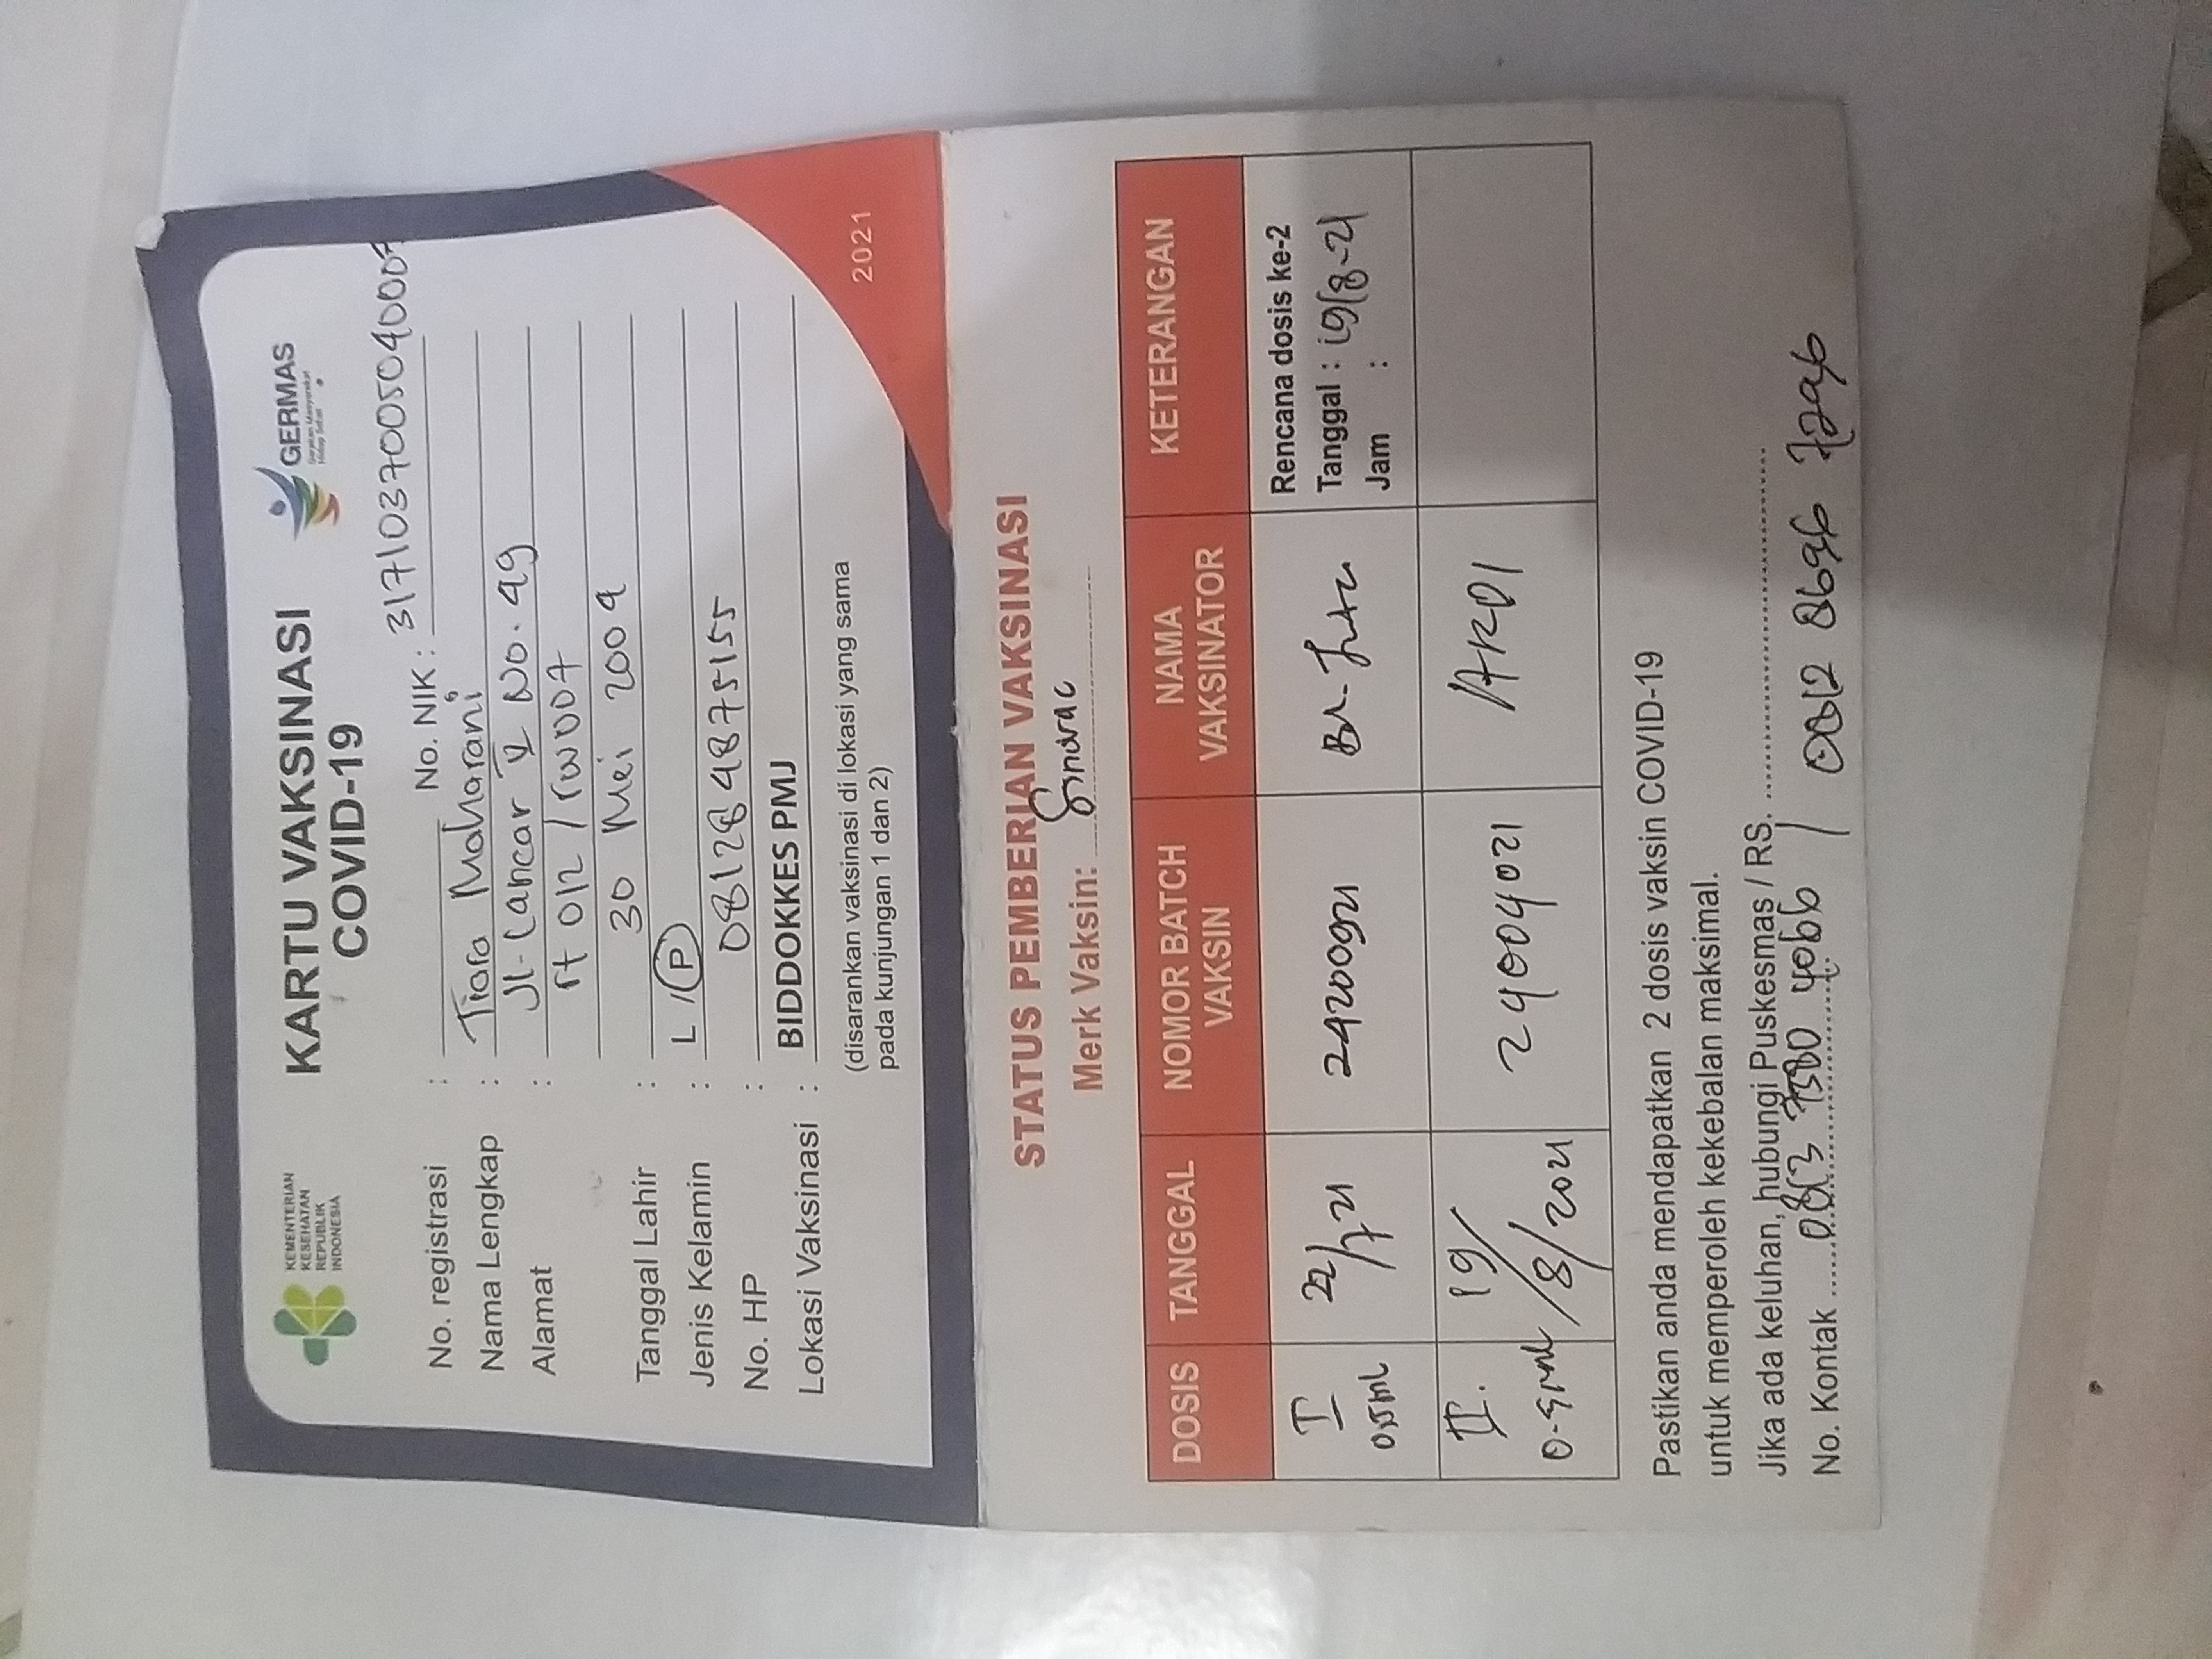 KEMENTERIAN
KESEHATAN
REPUBLIK
INDONESIA
KARTU VAKSINASI
COVID-19
GERMAS
Gerakan Masyarakat
Hidup Sehat
No. registrasi : No. NIK : 3171037005040007
Nama Lengkap : Tiara Maharani
Alamat : Jl. Cancar V No. 49
rt 012 / rw 007
Tanggal Lahir : 30 Mei 2004
Jenis Kelamin : L / P
No. HP : 081284875155
Lokasi Vaksinasi : BIDDOKKES PMJ
(disarankan vaksinasi di lokasi yang sama
pada kunjungan 1 dan 2)
2021
STATUS PEMBERIAN VAKSINASI
Merk Vaksin: Sinovac
DOSIS TANGGAL NOMOR BATCH VAKSIN NAMA VAKSINATOR KETERANGAN
I 0.5ml 22/7 21 24200921 Rencana dosis ke-2
Tanggal : 19/8-21
Jam :
II. 0.5ml 19/8/2021 24004021 ARDI
Pastikan anda mendapatkan 2 dosis vaksin COVID-19
untuk memperoleh kekebalan maksimal.
Jika ada keluhan, hubungi Puskesmas / RS.
No. Kontak 0813 7580 4066 / 0812 8696 7296